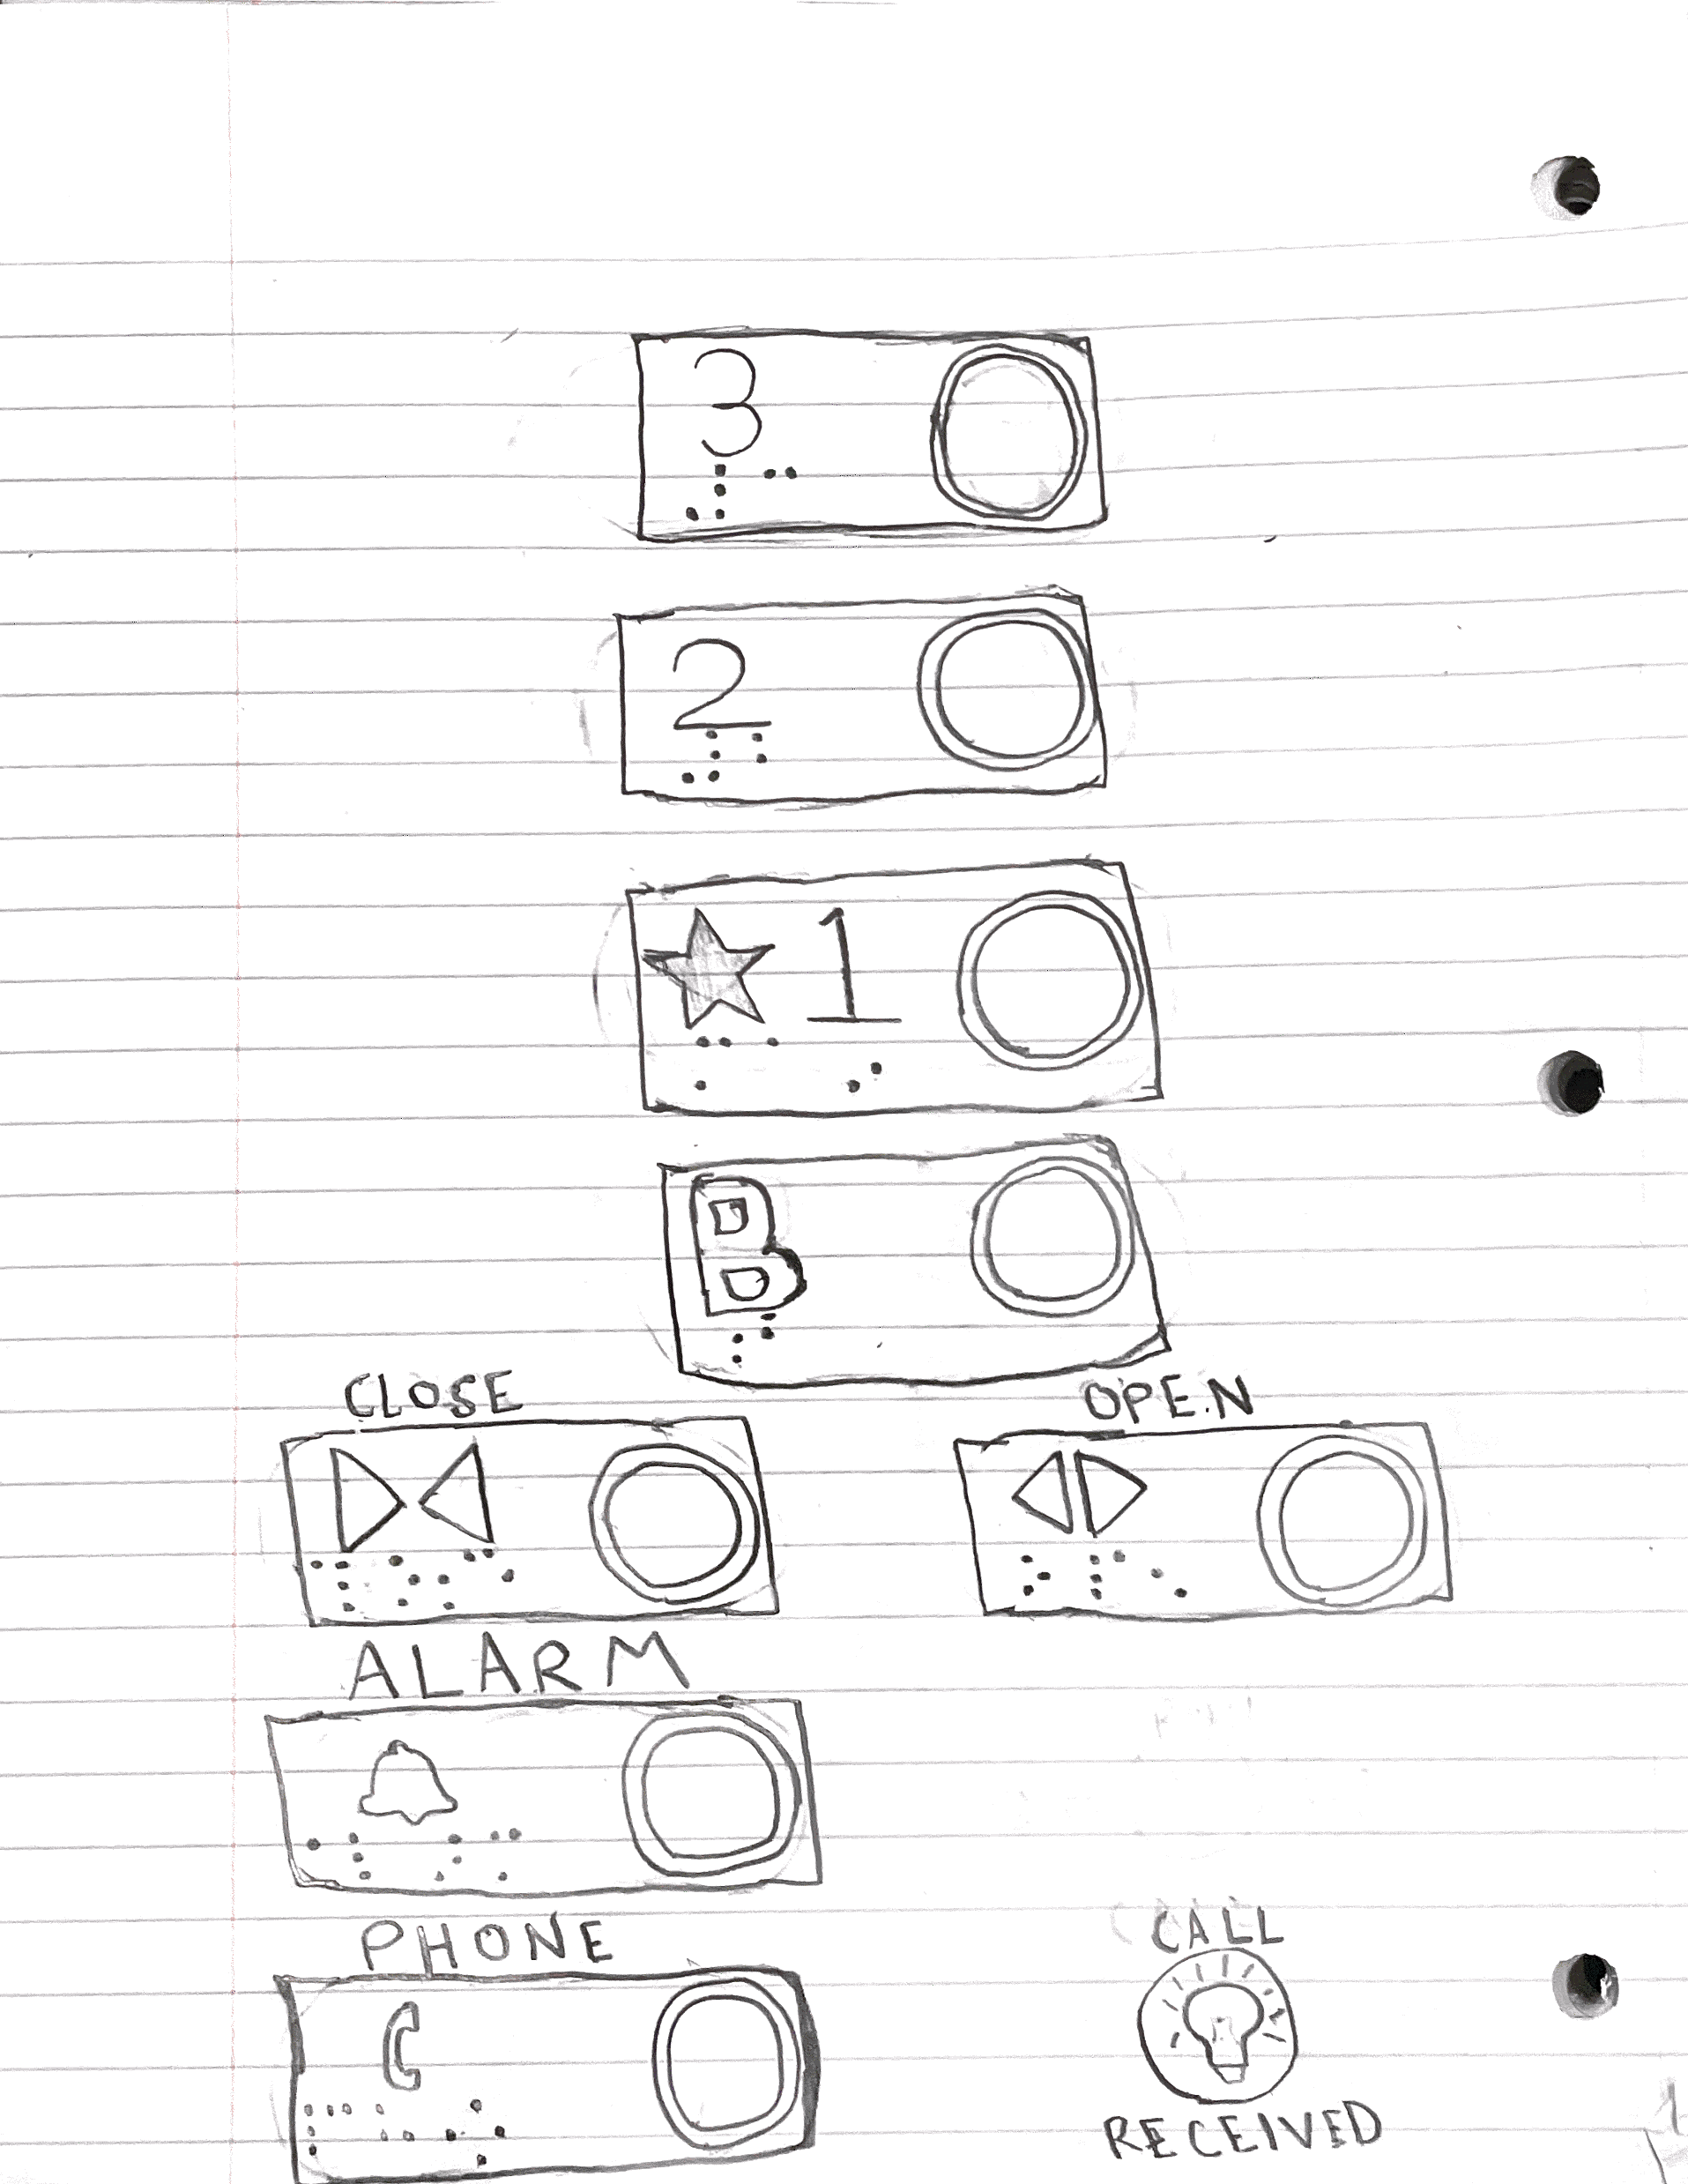 3
2
★ 1
B
CLOSE OPEN
ALARM
PHONE
CALL
RECEIVED